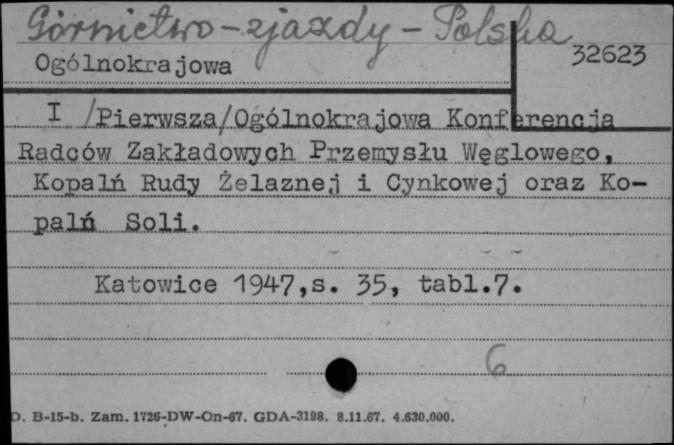 Górnictwo - zjazdy - Polska
32623
Ogólnokrajowa
I /Pierwsza/Ogólnokrajowa Konferencja
Radców Zakładowych Przemysłu Węglowego,
Kopalń Rudy Żelaznej i Cynkowej oraz Ko-
palń Soli.
Katowice 1947,s. 35, tabl.7.
6
D. B-15-b. Zam. 1726-DW-On-67. GDA-3198. 8.11.67. 4.630.000.